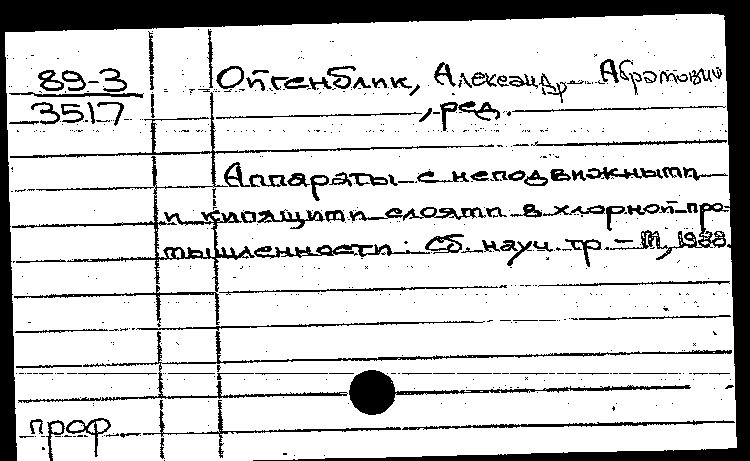 89-3
3517
Ойгенблик, Александр Абрамович
, ред.
Аппараты с неподвижными
и кипящими слоями в хлорной про-
мышленности: Сб. науч. тр. – М., 1988.
проф